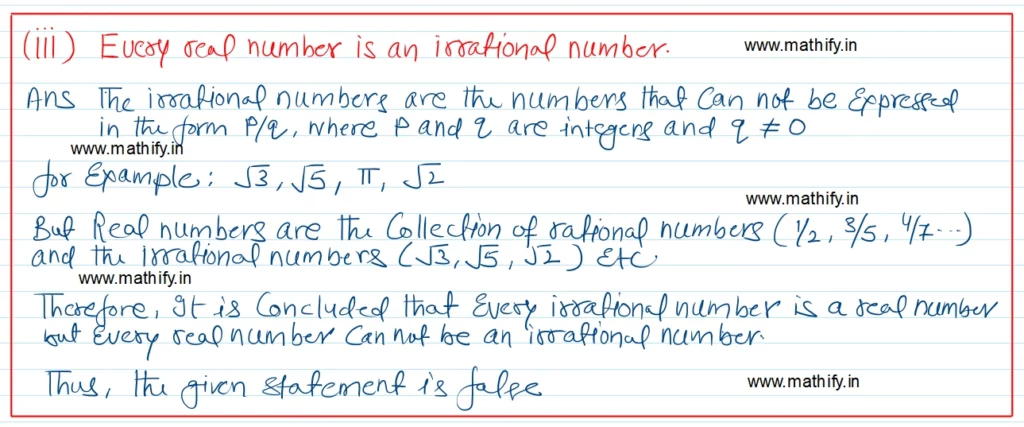 (iii) Every real number is an irrational number.
www.mathify.in
Ans The irrational numbers are the numbers that Can not be Expressed
in the form P/q, where P and q are integers and q ≠ 0
www.mathify.in
for Example: √3, √5, π, √2
www.mathify.in
But Real numbers are the Collection of rational numbers (1/2, 3/5, 4/7...)
and the irrational numbers (√3, √5, √2) Etc
www.mathify.in
Therefore, It is Concluded that Every irrational number is a real number
but Every real number Can not be an irrational number.
Thus, the given statement is false
www.mathify.in